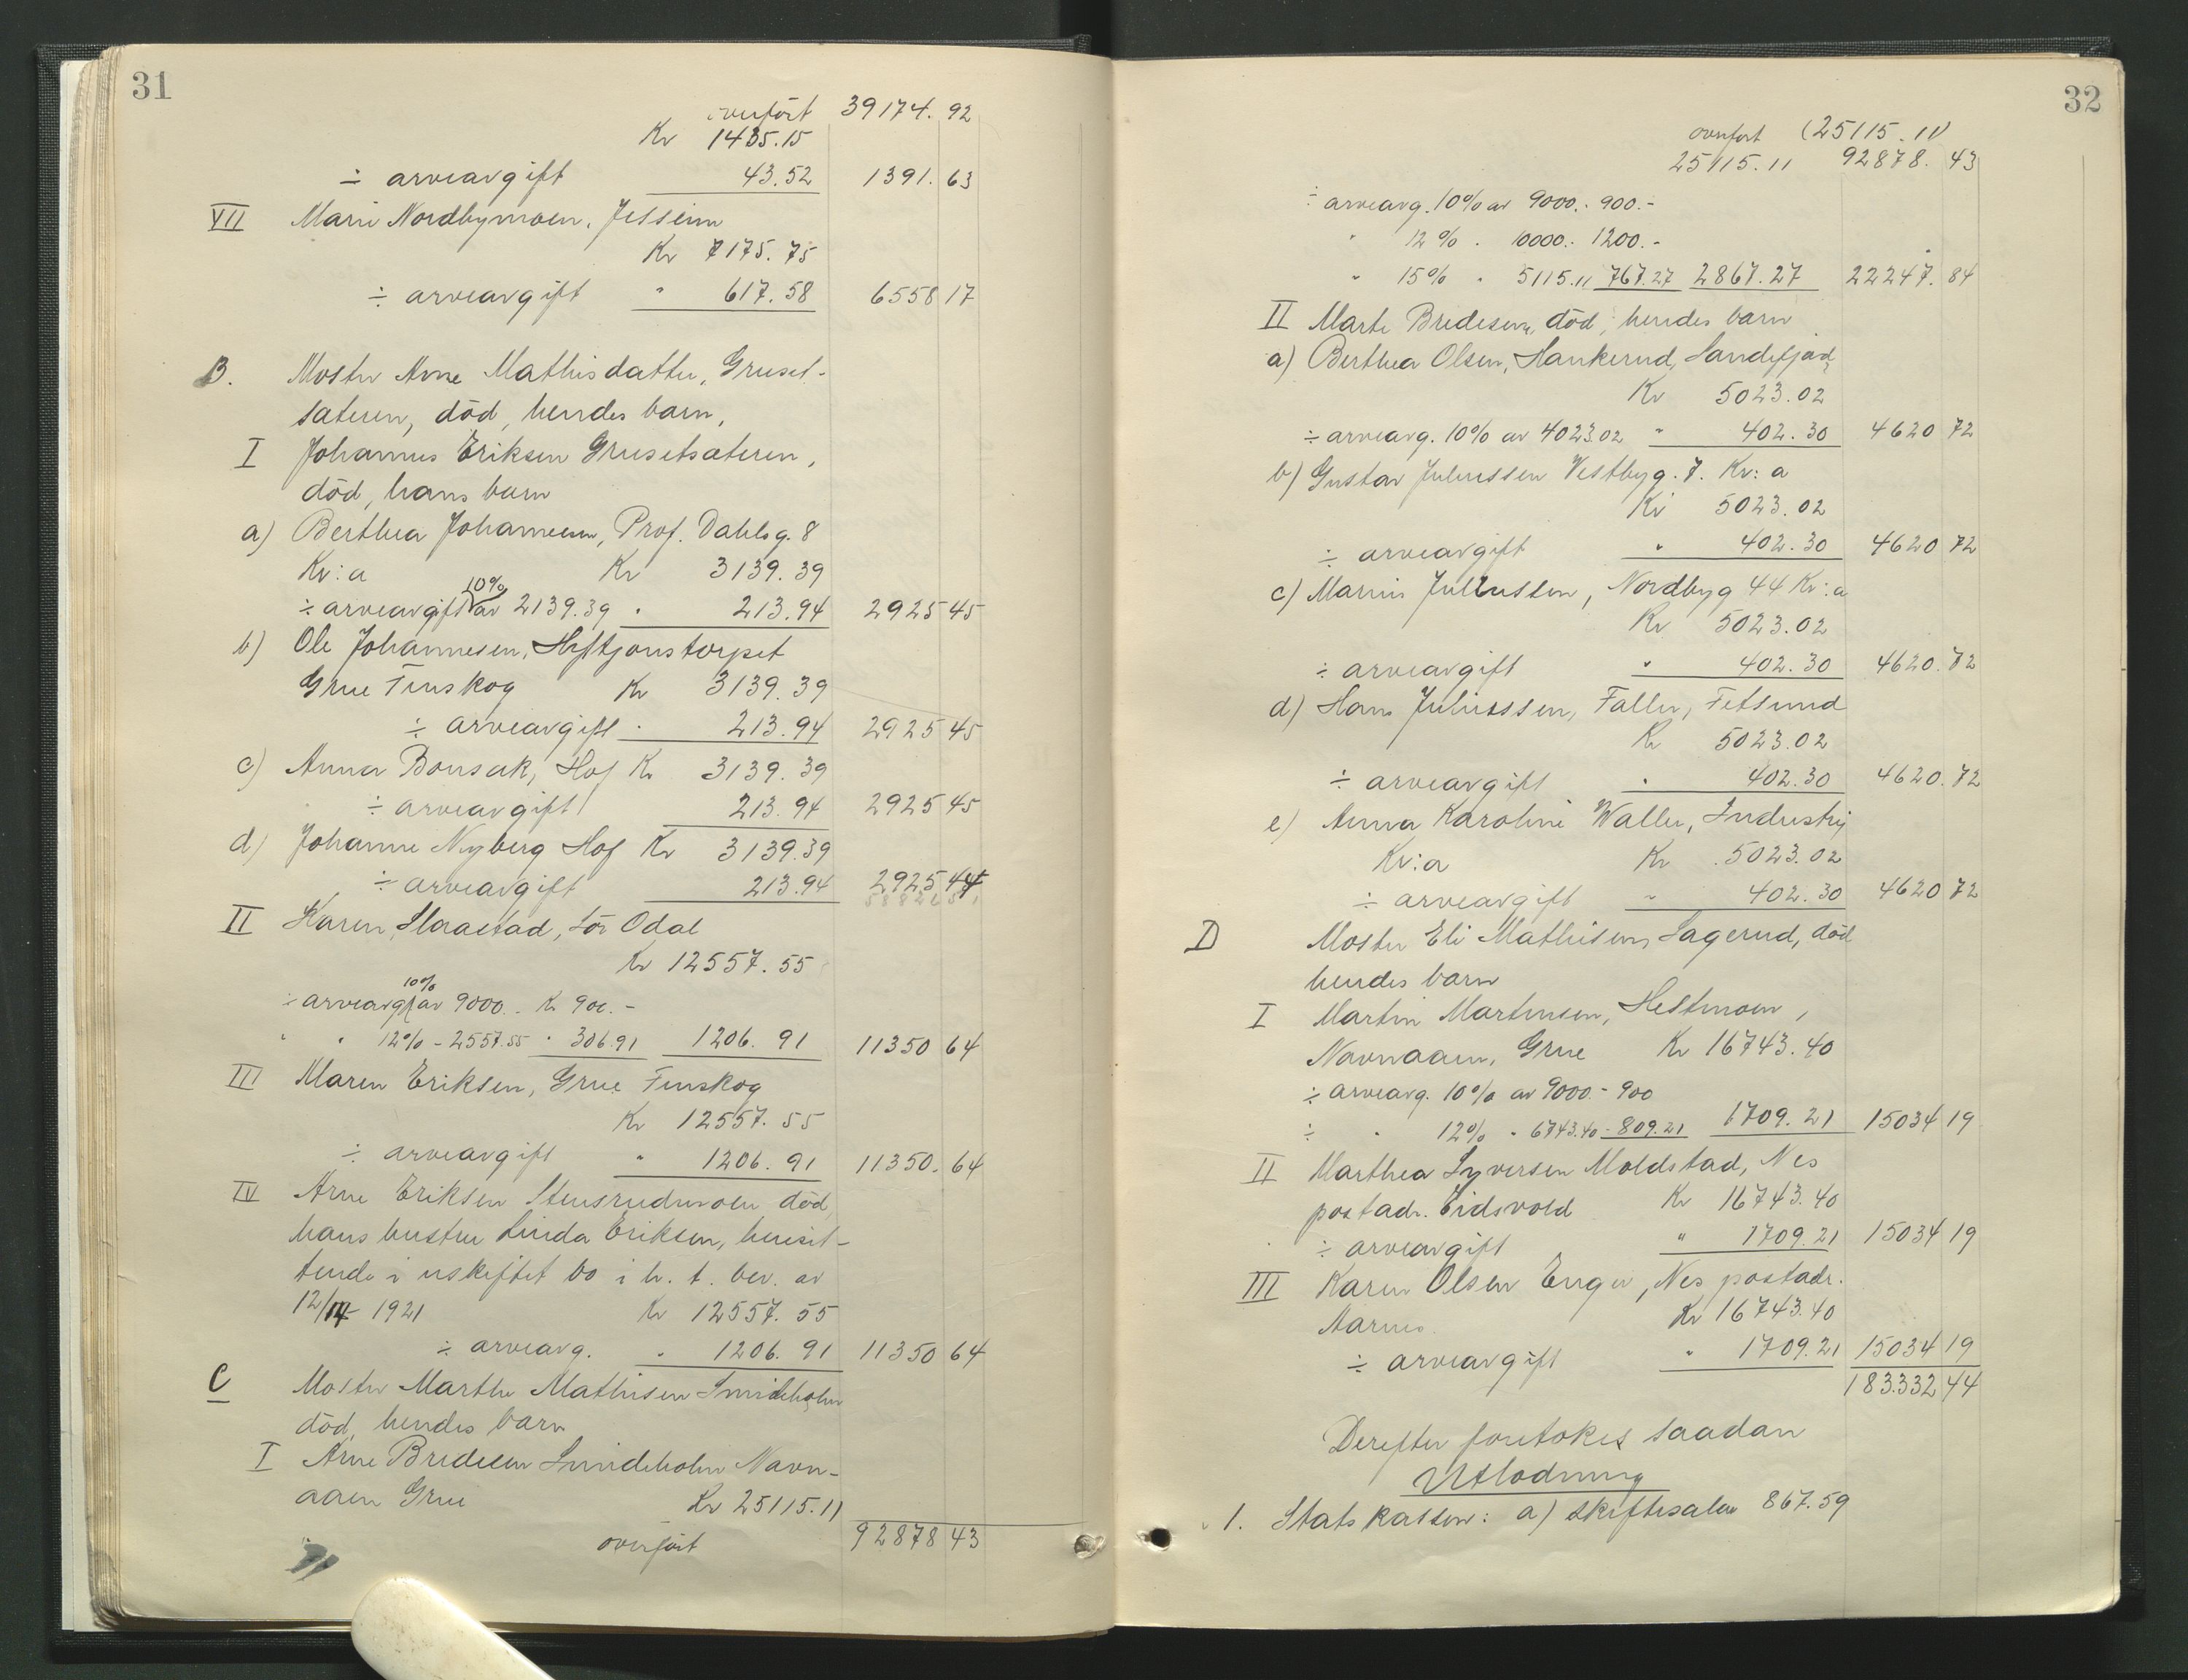 31
overført 39174. 92
Kr 1435.15
÷ arveavgift 43.52 1391. 63
VII Marie Nordbymoen, Jesseim
Kr 7175.75
÷ arveavgift " 617.58 6558 17
B. Moster Arne Mathisdatter, Gruset-
sæteren, død, hendes barn,
I Johannes Eriksen Grusetsæteren,
død, hans barn
a) Berthea Johannesen, Prof. Dahls g. 8
Kr:a Kr 3139.39
÷ arveavgift 10% av 2139.39 " 213.94 2925 45
b) Ole Johannesen,
Grue Finskog Kr 3139.39
÷ arveavgift " 213.94 2925 45
c) Anna Bonsak, Hof Kr 3139.39
÷ arveavgift 213.94 2925 45
d) Johanne Nyberg Hof Kr 3139.39
÷ arveavgift 213.94 2925 44
II Karen Slaastad, Sør Odal
Kr 12557.55
÷ arveavg. 10% av 9000.- Kr 900.-
" " 12% - 2557.55 " 306.91 1206.91 11350 64
III Maren Eriksen, Grue Finskog
Kr 12557.55
÷ arveavgift " 1206.91 11350. 64
IV Arne Eriksen Stensrudmoen død,
hans hustru Linda Eriksen, hensit-
tende i uskiftet bo i h. t. bev. av
12/ 1921 Kr 12557.55
÷ arveavg. " 1206.91 11350 64
C Moster Marthe Mathisen Smideholen
død, hendes barn
I Arne Bredesen Smideholen Navn-
aaen Grue Kr 25115.11
overført 92878 43
32
overført (25115.11)
25115.11 92878. 43
÷ arveavg. 10% av 9000.- 900.-
" 12% " 10000.- 1200.-
" 15% " 5115.11 767.27 2867.27 22247. 84
II Marte Bredesen, død, hendes barn
a) Berthea Olsen, Haukerud, Sandefjord,
Kr 5023.02
÷ arveavg. 10% av 4023.02 " 402.30 4620 72
b) Gustav Juliussen Vestbyg. 7. Kr:a
Kr 5023.02
÷ arveavgift " 402.30 4620 72
c) Marius Juliussen, Nordbyg 44 Kr:a
Kr 5023.02
÷ arveavgift " 402.30 4620. 72
d) Hans Juliussen, Faller, Fetsund
Kr 5023.02
÷ arveavgift " 402.30 4620. 72
e) Anna Karoline Waller, Industrig
Kr:a Kr 5023.02
÷ arveavgift " 402.30 4620 72
D Moster Eli Mathisen, Sagerud, død
hendes barn
I Martin Martinsen, Hestmoen,
Navnaaen, Grue Kr 16743.40
÷ arveavg. 10% av 9000.- 900
÷ " 12% " 6743.40 - 809.21 1709.21 15034 19
II Marthea Syversen Moldstad, Nes
postadr. Eidsvold Kr 16743.40
÷ arveavgift " 1709.21 15034 19
III Karen Olsen Enger, Nes postadr.
Aarnes. Kr 16743.40
÷ arveavgift " 1709.21 15034 19
183.332 44
Derefter foretokes saadan
Utlodning
1. Statskassen: a) skiftesalær 867.59